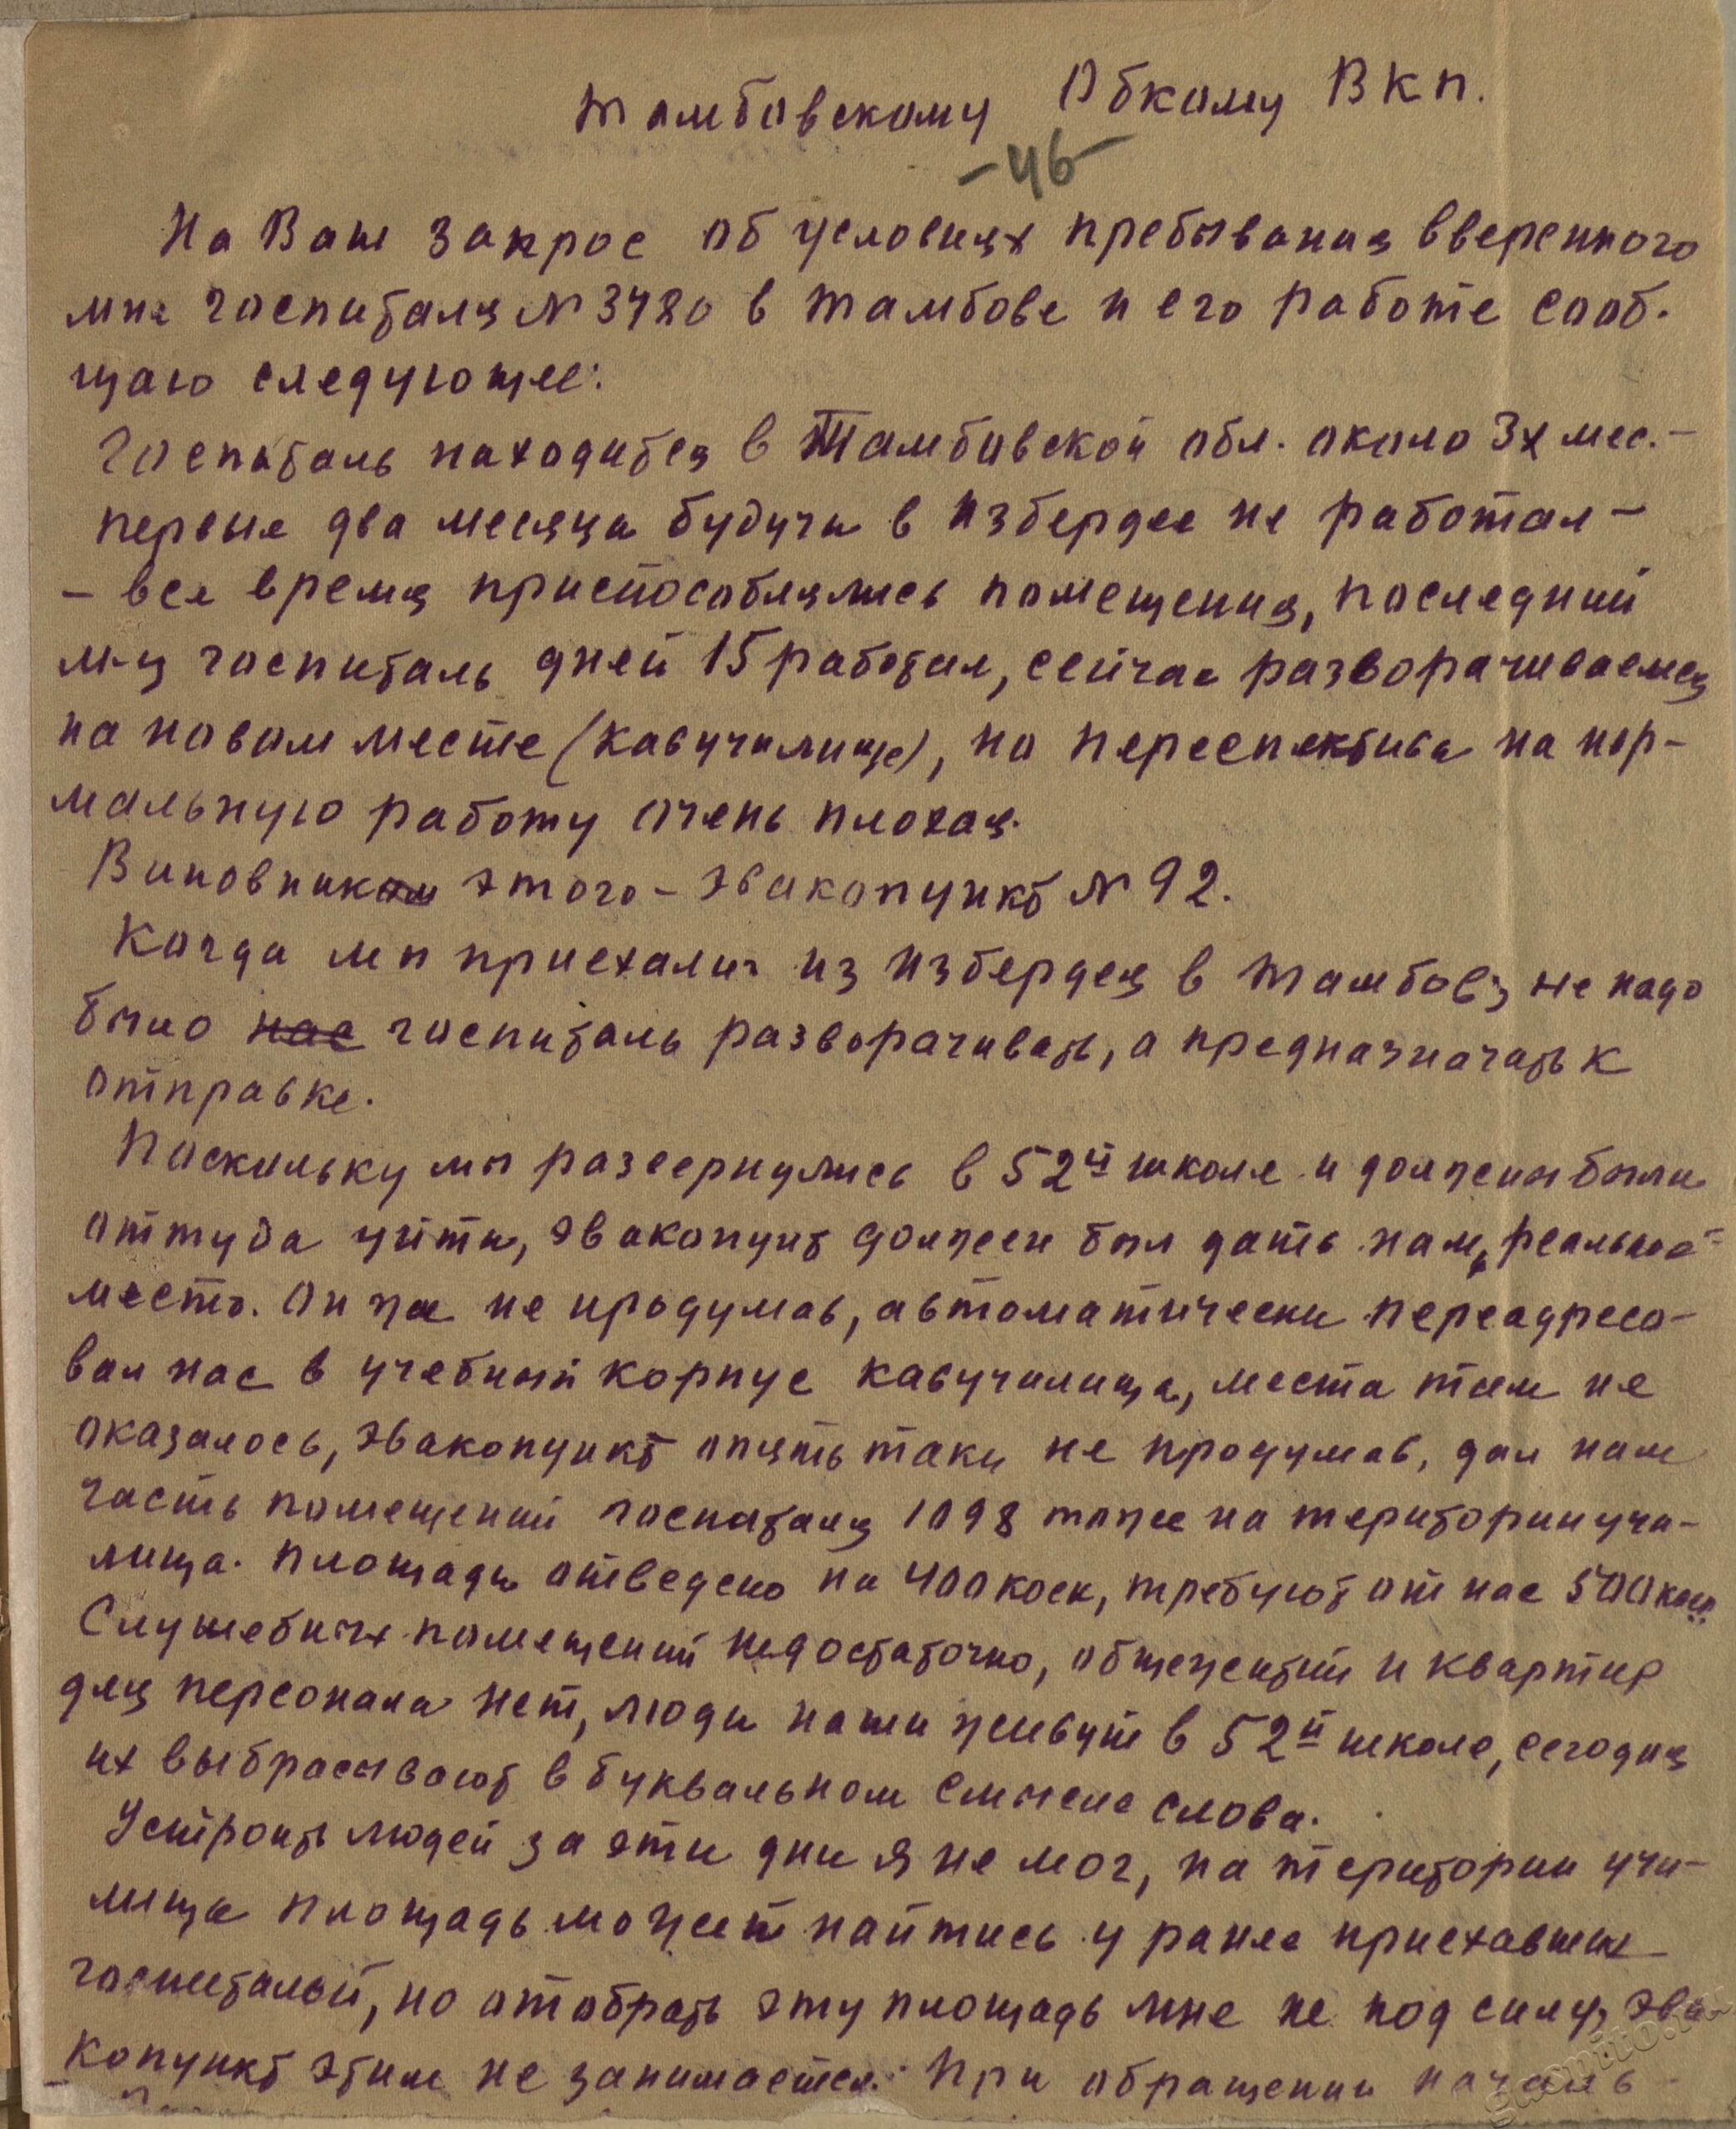 Тамбовскому Обкому ВКП.
-46-
На Ваш запрос об условиях пребывания вверенного
мне госпиталя N 3480 в Тамбове и его работе сооб-
щаю следующее:
Госпиталь находится в Тамбовской обл. около 3х мес.-
первые два месяца будучи в Избердее не работал-
- все время приспособлялись помещения, последний
м-ц госпиталь дней 15 работал, сейчас разворачиваемся
на новом месте (кавучилище), но переспектива на нор-
мальную работу очень плохая.
Виновником этого - эвакопункт N 92.
Когда мы приехали из Избердея в Тамбов, не надо
было нас госпиталь разворачивать, а предназначать к
отправке.
Поскольку мы развернулись в 52й школе и должны были
оттуда уйти, эвакопункт должен был дать нам реальное
место. Он же не продумав, автоматически переадресо-
вал нас в учебный корпус кавучилища, места там не
оказалось, эвакопункт опять таки не продумав, дал нам
часть помещений госпиталя 1098 тоже на територии учи-
лища. Площади отведено на 400 коек, требуют от нас 500 коек.
Служебных помещений недостаточно, общежитий и квартир
для персонала нет, люди наши живут в 52й школе, сегодня
их выбрасывают в буквальном смысле слова.
Устроить людей за эти дни я не мог, на територии учи-
лища площадь может найтись у ранее приехавших
госпиталей, но отобрать эту площадь мне не под силу, эва-
копункт этим не занимается. При обращении